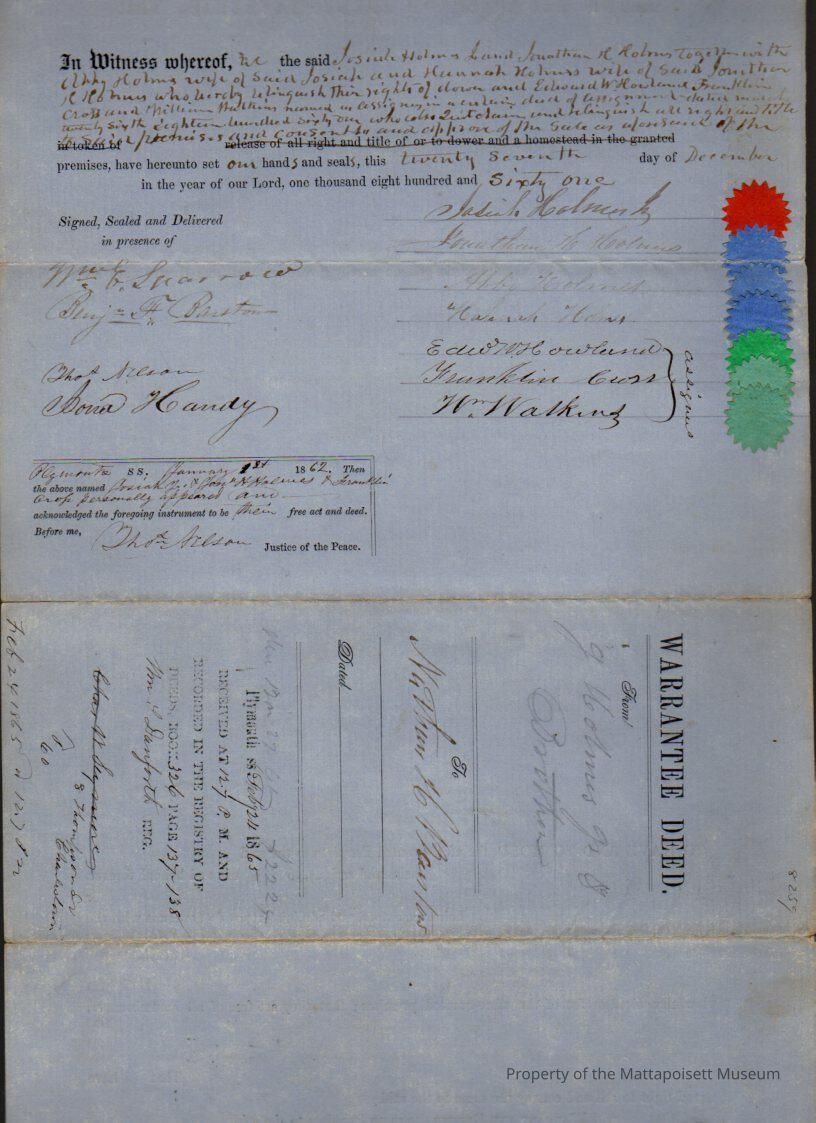 In Witness whereof, We the said Josiah Holmes Jr and Jonathan H Holmes together with
Abby Holmes wife of said Josiah and Hannah Holmes wife of said Jonathan
H Holmes who hereby relinquish their rights of dower and Edward W Howland Franklin
Cross and William Watkins named as assignees in a certain deed of assignment dated
twenty sixth eighteen hundred sixty one who also quitclaim and relinquish all right and title
to said premises and consent to and approve of the sale as aforesaid of the
in token of release of all right and title of or to dower and a homestead in the granted
premises, have hereunto set our hands and seals, this twenty Seventh day of December
in the year of our Lord, one thousand eight hundred and Sixty one
Signed, Sealed and Delivered
in presence of
Josiah Holmes Jr
Jonathan H Holmes
Wm E. Sparrow
Abby Holmes
Benj= F. Barstow
Hannah Holmes
Edw W Howland
Thos Nelson
Franklin Cross
Handy
Wm. Watkins
assignees
Plymouth SS. January 1st 1862. Then
the above named Josiah Jr. & Jon H Holmes & Franklin
Cross personally appeared and
acknowledged the foregoing instrument to be their free act and deed.
Before me,
Thos Nelson Justice of the Peace.
WARRANTEE DEED.
From
J Holmes Jr &
Brother
To
Nathan H Barstow
Dated
Plymouth ss Feby 24 1865
RECEIVED AT 12.7 P. M. AND
RECORDED IN THE REGISTRY OF
DEEDS, BOOK 326 PAGE 137-138
Wm S Danforth REG.
Chas
8 Thompson
Charlestown
Feb 24 1865
825
Property of the Mattapoisett Museum